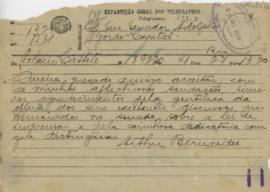 REPARTIÇÃO GERAL DOS TELEGRAPHOS
Telegramma
Exm Senador Adolpho
Gordo Capital
Rio
Palacio Cattete 41 27 13,20
Queira presado amigo acceitar com
as minhas affectuosas saudações since
ros agradecimentos pela gentileza da
offerta dos seus excellentes discursos pro
nunciados no senado sobre a lei de
imprensa e pela captivante dedicatoria com
que distinguiu
Arthur Bernardes